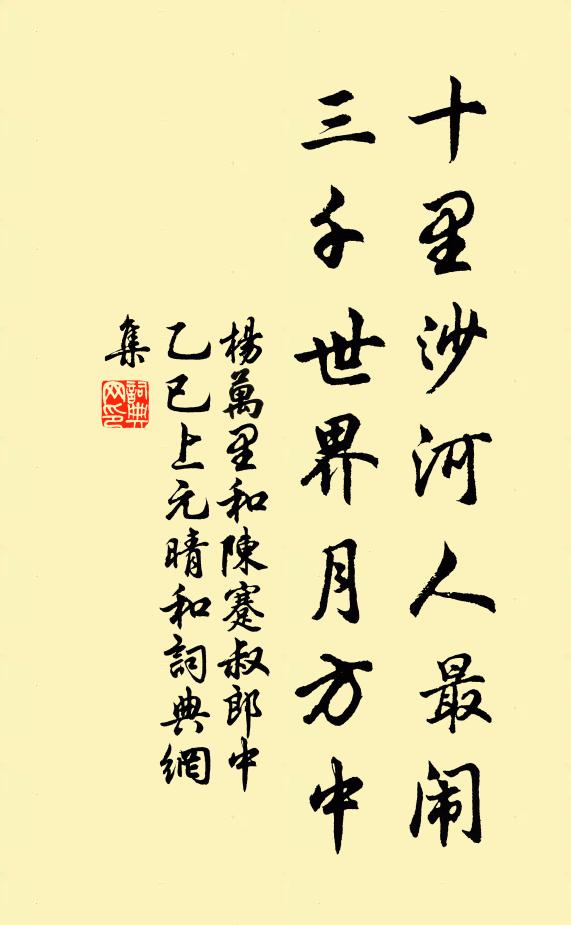 十里沙河人最闹
三千世界月方中
楊萬里和陳蹇叔郎中
乙巳上元晴和詞典網
集
詞典
网印